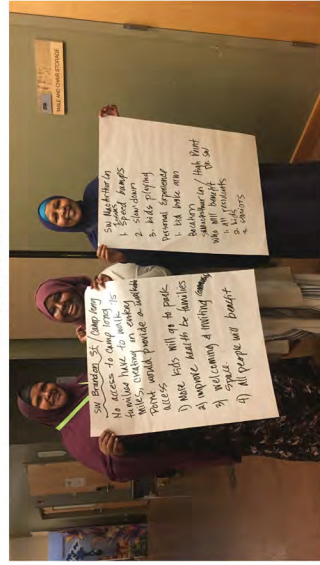 TABLE AND CHAIR STORAGE
SW Brandon St / Camp long
No access to camp long
families have to walk 1.5
miles, creating an entry
Point would provide a
access
1) More kids will go to park
2) improve health be families
3) welcoming & inviting
space.
4) All people will benefit
SW MacArthur Ln
1. Speed humps
2. Slow down
3. kids playing
Personal Experience
1. kid broke arm
Location
SW MacArthur Ln / High Point
Dr SW
Who will benefit
1. All residents
2. kids
3. seniors